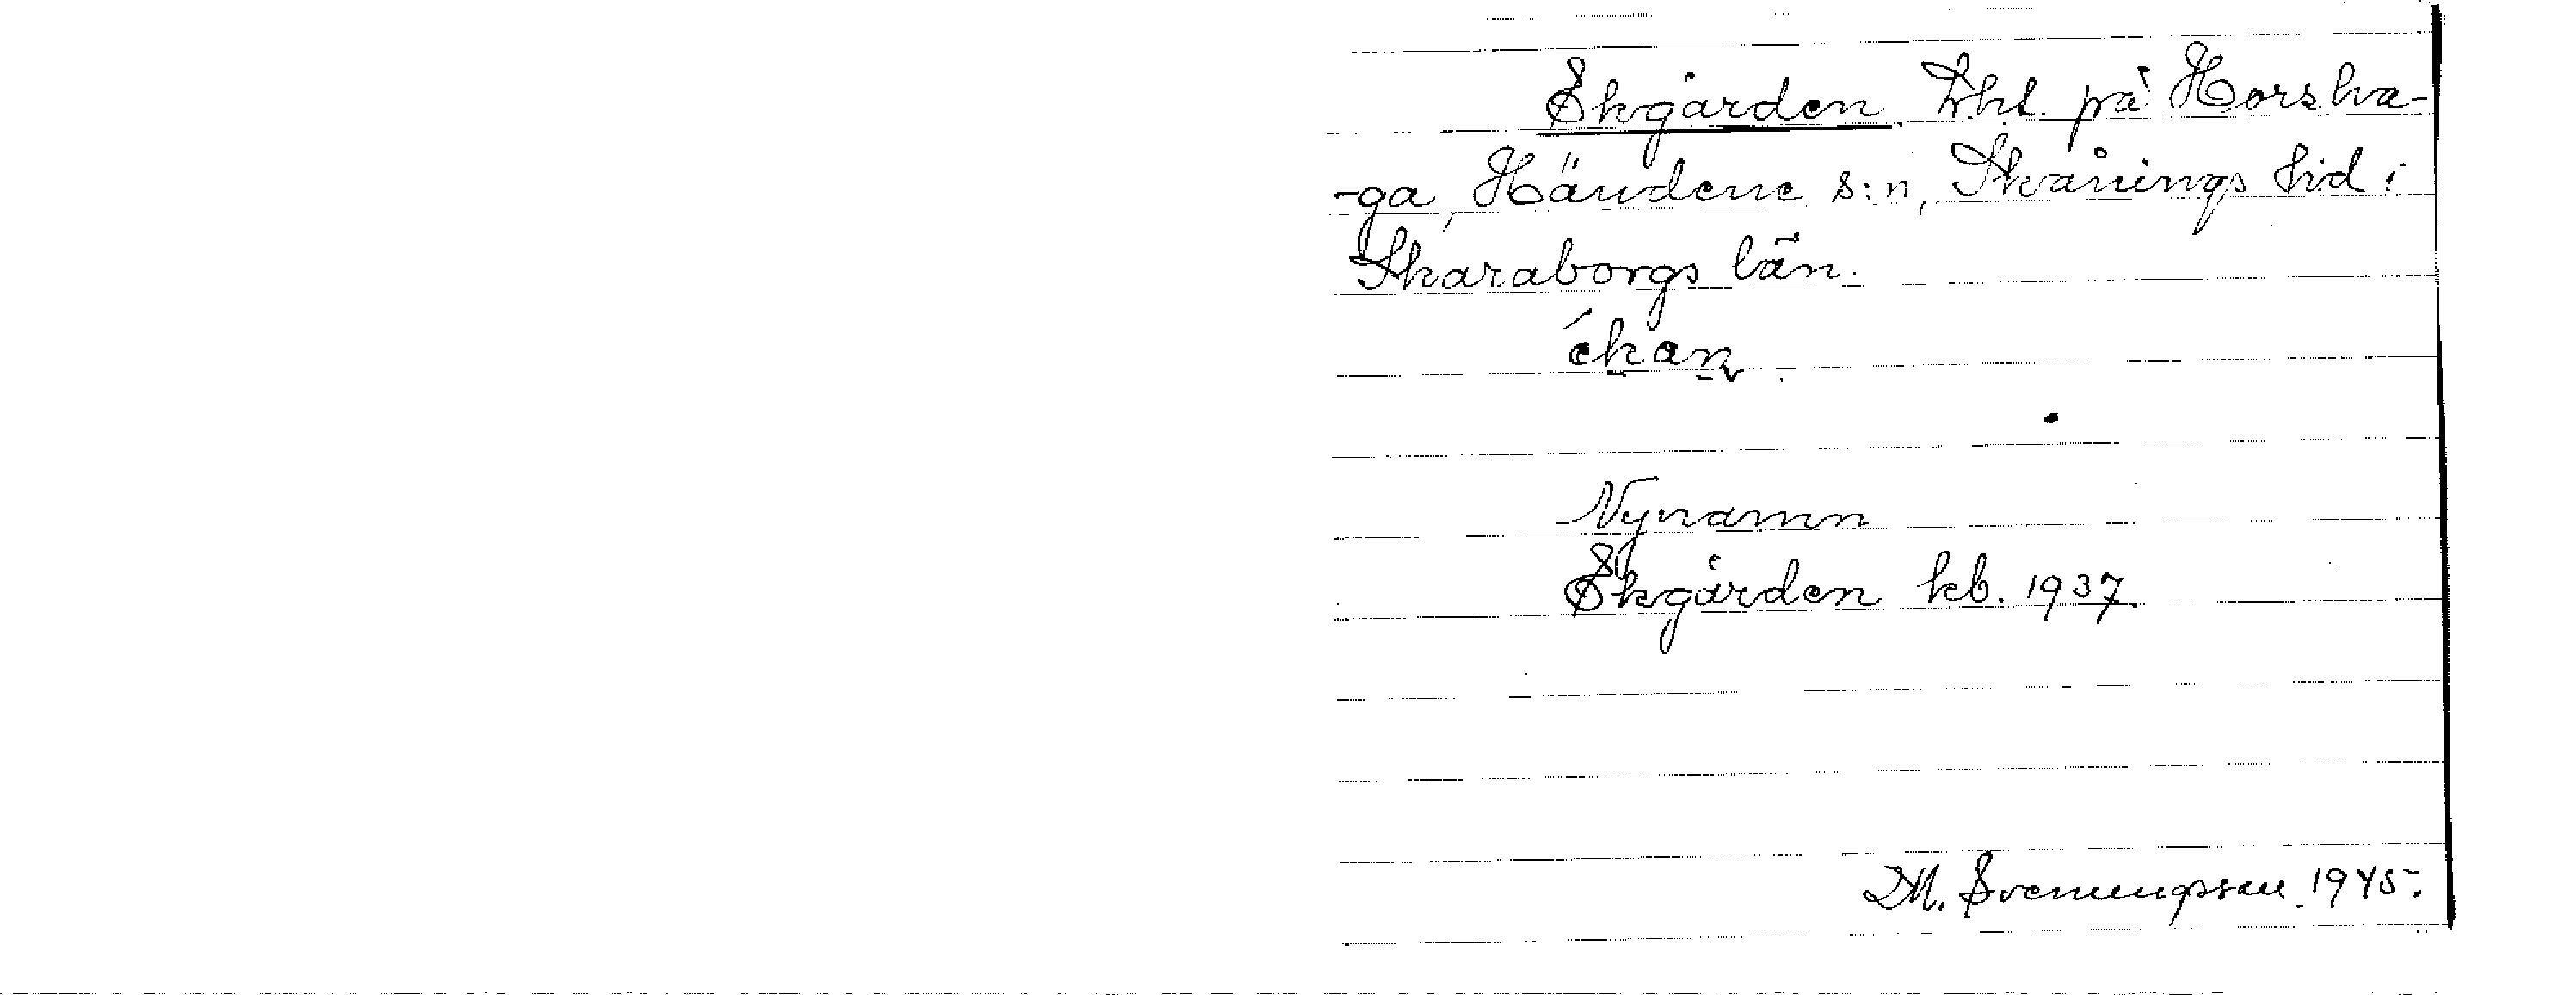 Ekgården. Lht. på Horsha-
-ga, Händene s:n, Skånings hd i
Skaraborgs län.
ékan.
Nynamn
Ekgården kb. 1937.
M. Svenungsson 1945.